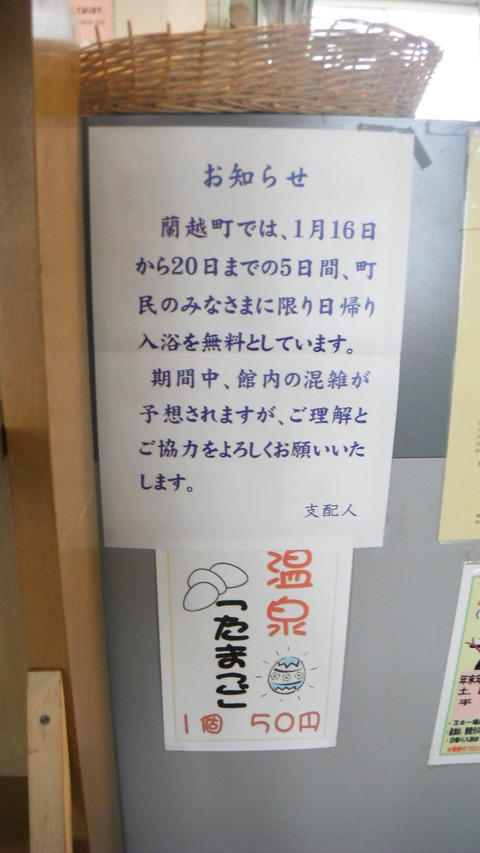 お知らせ
蘭越町では、1月16日
から20日までの5日間、町
民のみなさまに限り日帰り
入浴を無料としています。
期間中、館内の混雑が
予想されますが、ご理解と
ご協力をよろしくお願いいた
します。
支配人
温泉
たまご
1個 50円
年末年
土、
平
・スキー場
・日帰り入浴